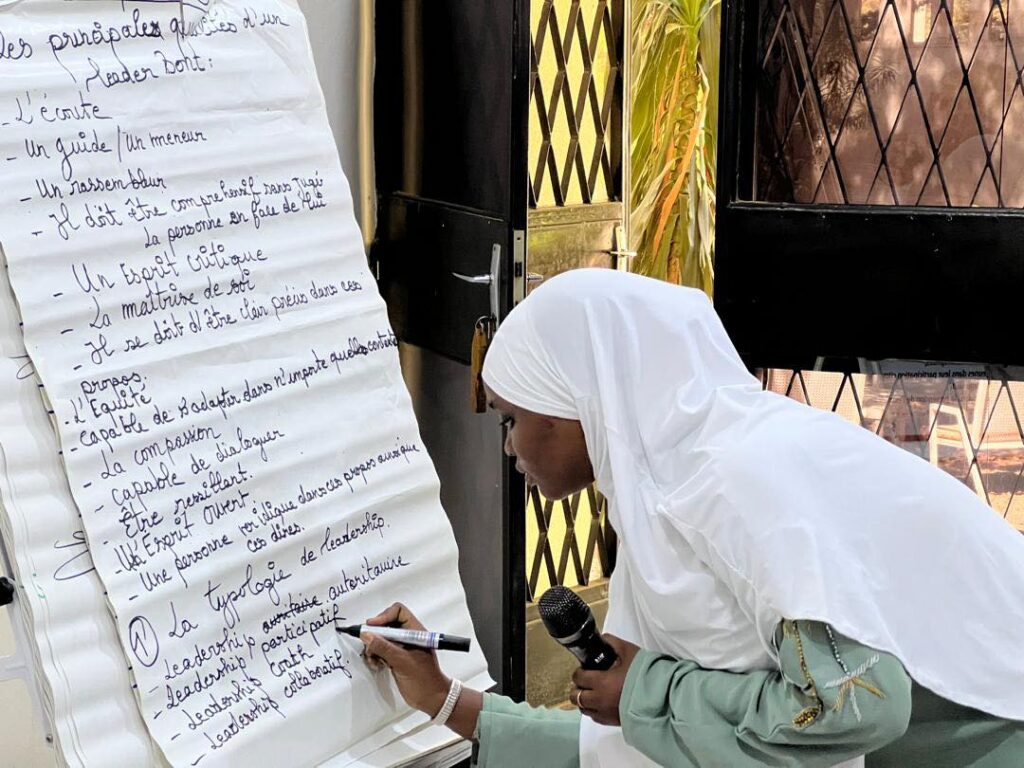 les principales qualités d'un
leader sont :
- L'écoute
- Un guide / Un meneur
- Un rassembleur
- Il doit être comprehensif sans jugé
la personne en face de lui
- Un Esprit critique
- La maîtrise de soi
- Il se doit d'être clair précis dans ces
propos
- L'Equité
- capable de s'adapter dans n'importe quelles contexte
- La compassion
- capable de dialoguer
- Être resillant.
- Un Esprit ouvert
- Une personne véridique dans ces propos ainsi que
ces dires.
La typologie de leadership.
- Leadership autoritaire
- Leadership participatif
- Leadership
- Leadership collaboratif.